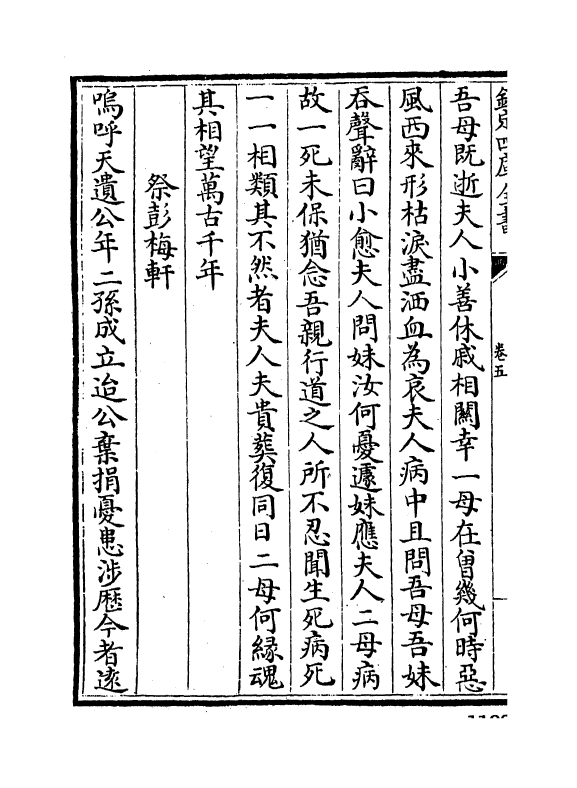 欽定四庫全書
卷五
吾母既逝夫人小善休戚相關幸一母在曾幾何時惡
風西來形枯淚盡洒血為哀夫人病中且問吾母吾妹
吞聲辭曰小愈夫人問妹汝何憂遽妹應夫人二母病
故一死未保猶念吾親行道之人所不忍聞生死病死
一一相類其不然者夫人夫貴葬復同日二母何緣魂
其相望萬古千年
祭彭梅軒
嗚呼天遺公年二孫成立迨公棄捐憂患涉歷今者遠